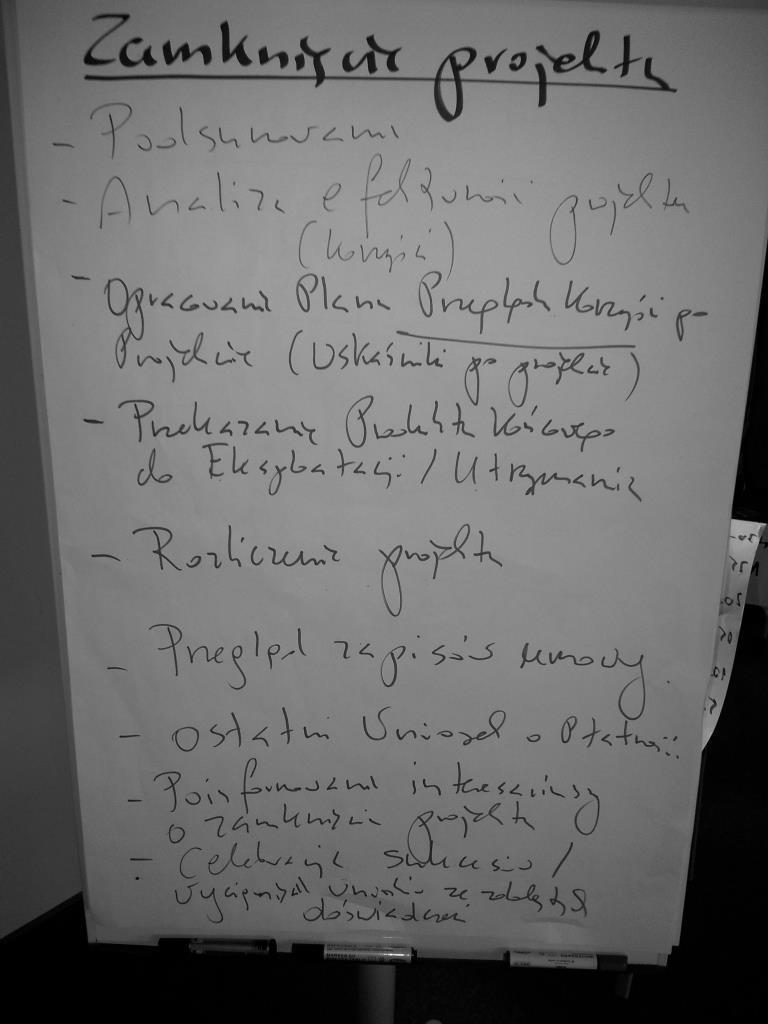 Zamknięcie projektu
- Podsumowanie
- Analiza efektywności projektu
(korzyści)
- Opracowanie Planu Przeglądu Korzyści po
Projekcie (Wskaźniki po projekcie)
- Przekazanie Produktu Końcowego
do Eksploatacji / Utrzymania
- Rozliczenie projektu
- Przegląd zapisów umowy.
- Ostatni Wniosek o Płatność
- Poinformowanie interesariuszy
o zamknięciu projektu
- Celebracja sukcesu /
wyciągnięcie wniosków ze zdobytych
doświadczeń